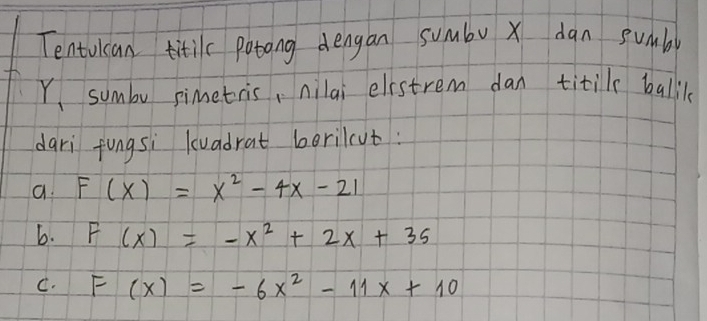 Tentukan titik Potong dengan sumbu X dan sumbu
Y, sumbu simetris, nilai ekstrem dan titik balik
dari fungsi kuadrat berikut :
a. F (x) = x² - 4x - 21
b. F (x) = -x² + 2x + 35
c. F (x) = -6x² - 11x + 10